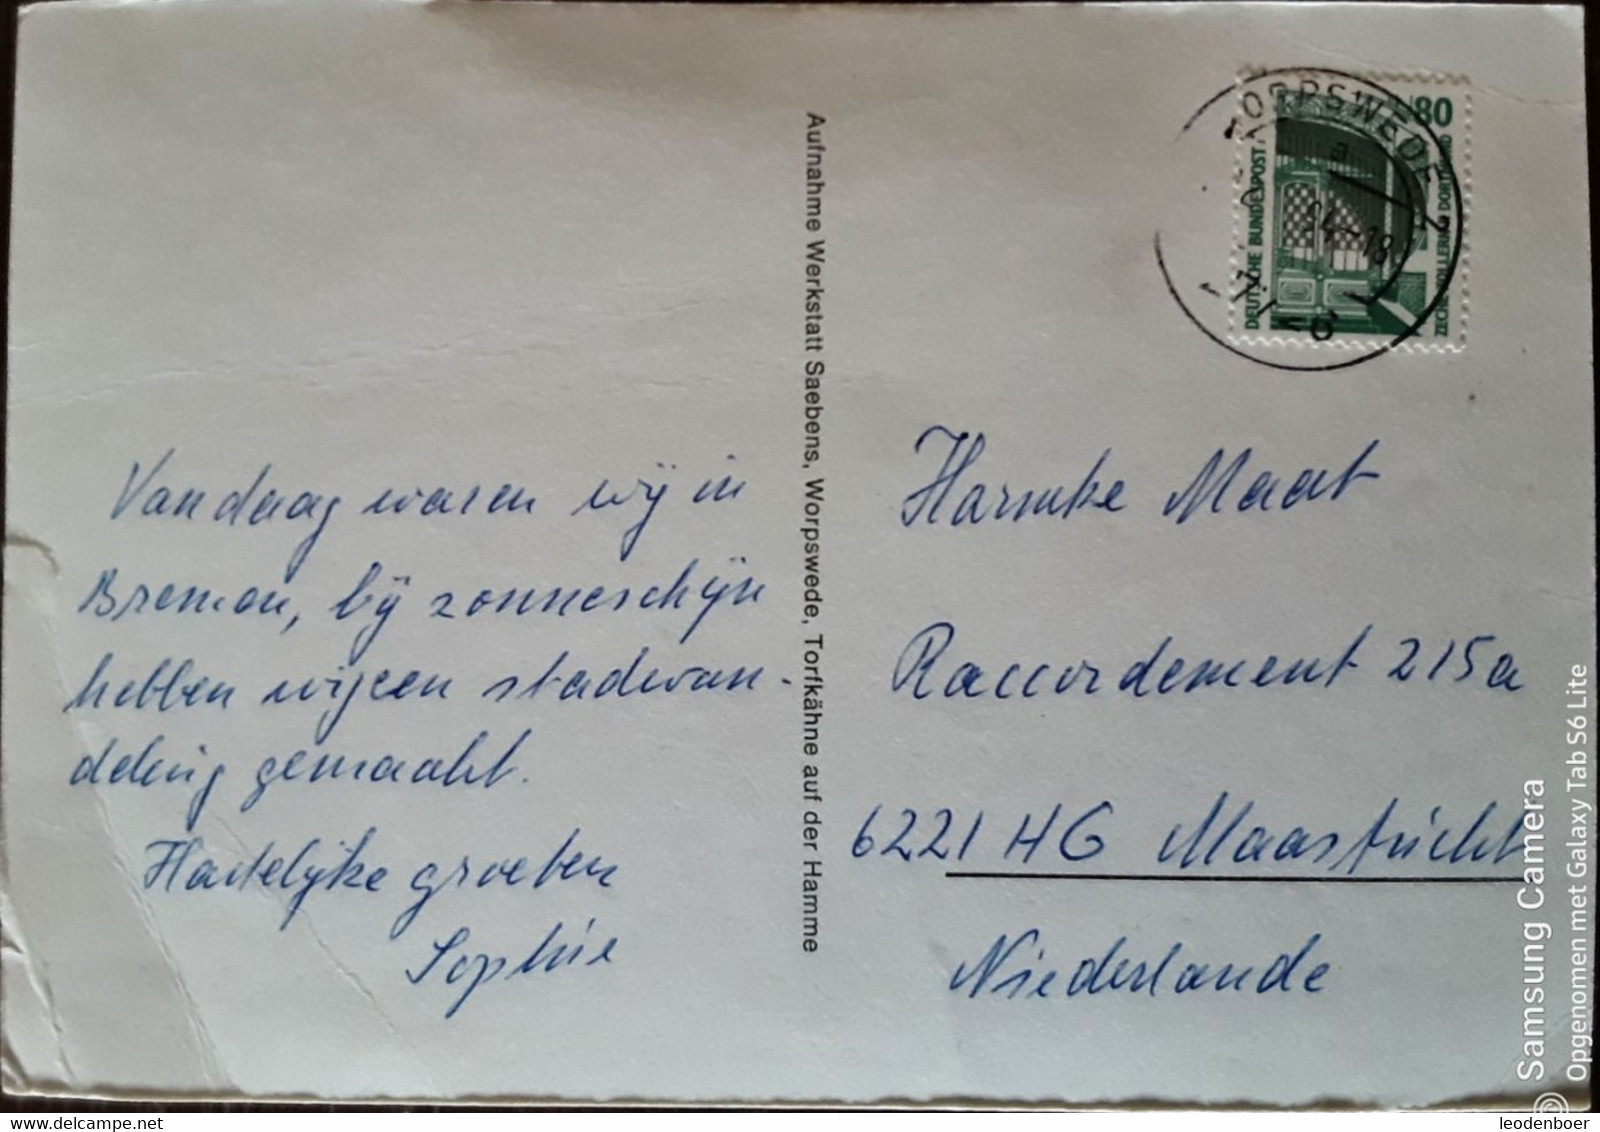 Vandaag waren wij in
Bremen, bij zonneschijn
hebben wij een stadwan-
deling gemaakt.
Hartelijke groeten
Sophie
Aufnahme Werkstatt Saebens, Worpswede, Torfkähne auf der Hamme
80
DEUTSCHE BUNDESPOST
ZECHE ZOLLERN 2 DORTMUND
WORPSWEDE
a
-18
Harmke Maat
Raccordement 215a
6221 HG Maastricht
Niederlande
Samsung Camera
Opgenomen met Galaxy Tab S6 Lite
delcampe.net
leodenboer